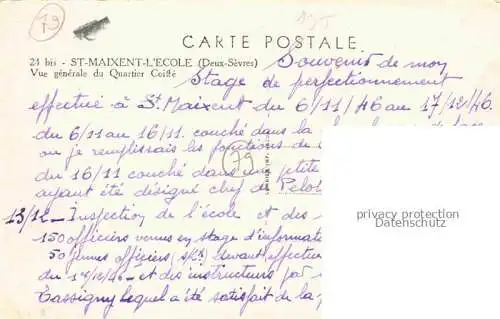 79
125
CARTE POSTALE
24 bis - ST-MAIXENT-L'ECOLE (Deux-Sèvres)
Vue générale du Quartier Coiffé
Souvenir de mon
Stage de perfectionnement
effectué à St Maixent du 6/11/46 au 17/12/46.
du 6/11 au 16/11. couché dans la
ou je remplissais les fonctions de
du 16/11 couché dans une petite
ayant été désigné chef de Pelot
79
privacy protection
Datenschutz
13/12 - Inspection de l'école et des
150 officiers venus en stage d'informat
50 jeunes officiers devant effectuer
du 1er/12/46 - et des instructeurs par
Tassigny lequel a été satisfait de la